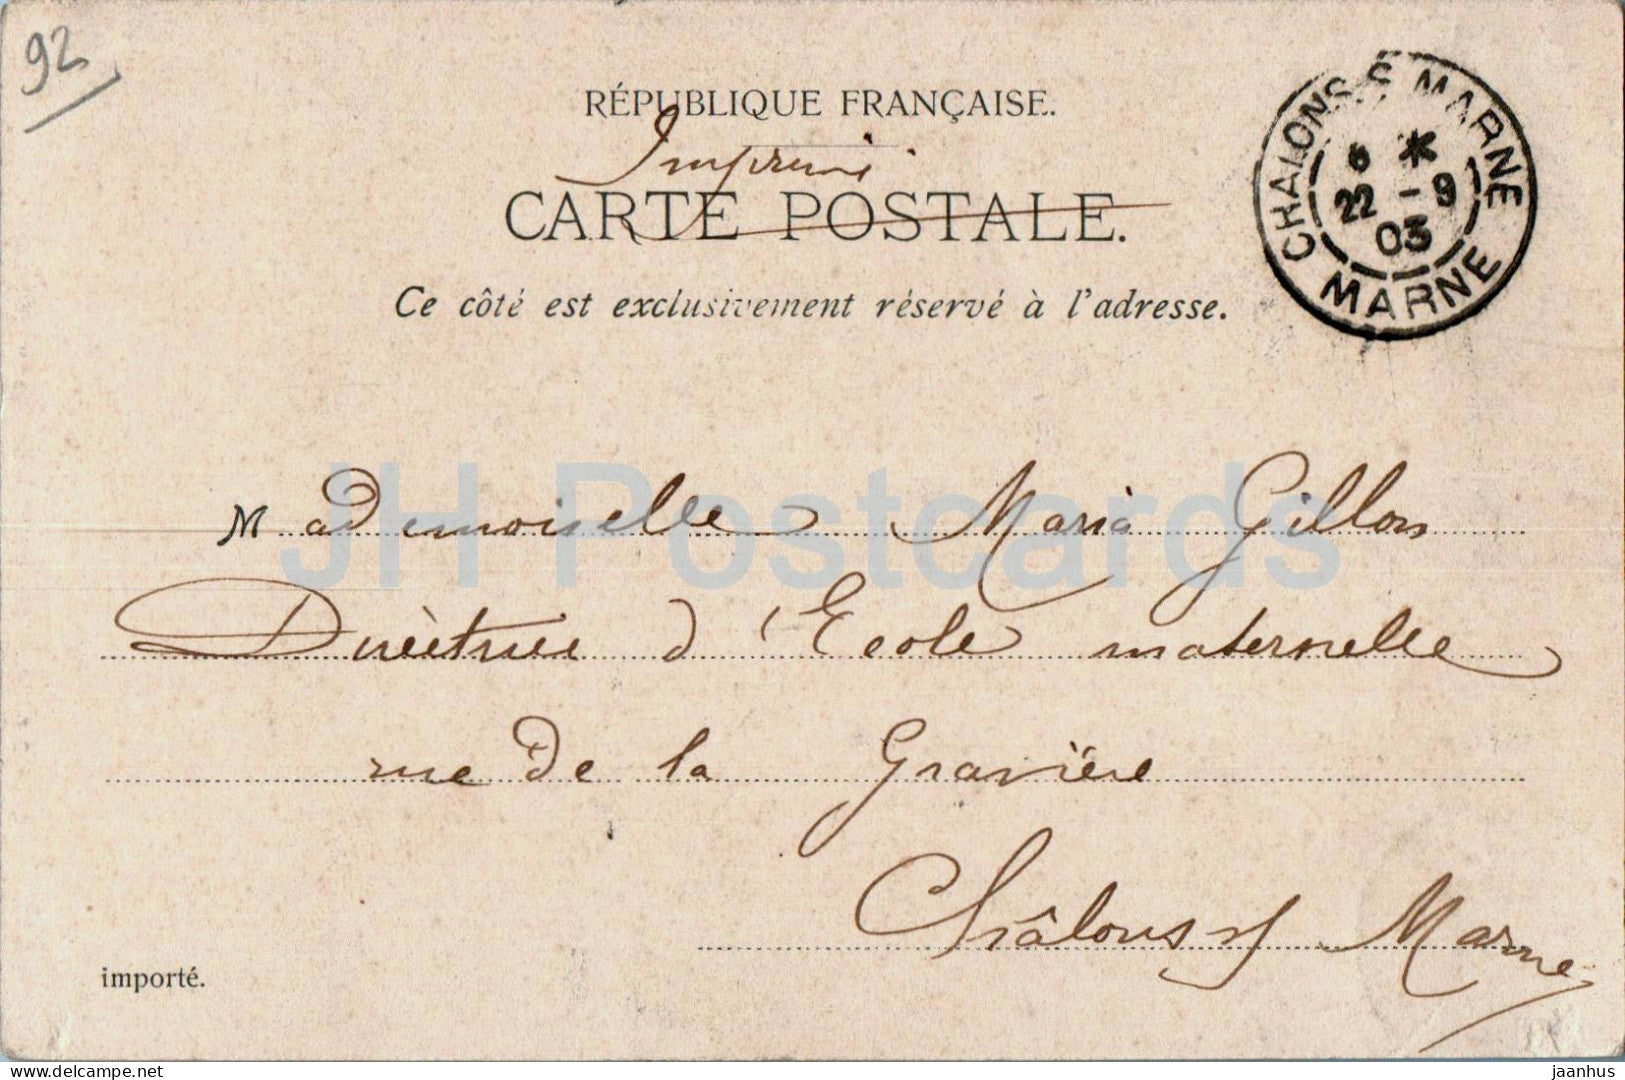 92
RÉPUBLIQUE FRANÇAISE.
Imprimé
CARTE POSTALE.
Ce côté est exclusivement réservé à l'adresse.
CHALONS-S-MARNE
6 *
22 - 9
03
MARNE
JH Postcards
Mademoiselle Maria Gillon
Directrice d'Ecole maternelle
rue de la Gravière
Châlons s/ Marne
importé.
www.delcampe.net
jaanhus